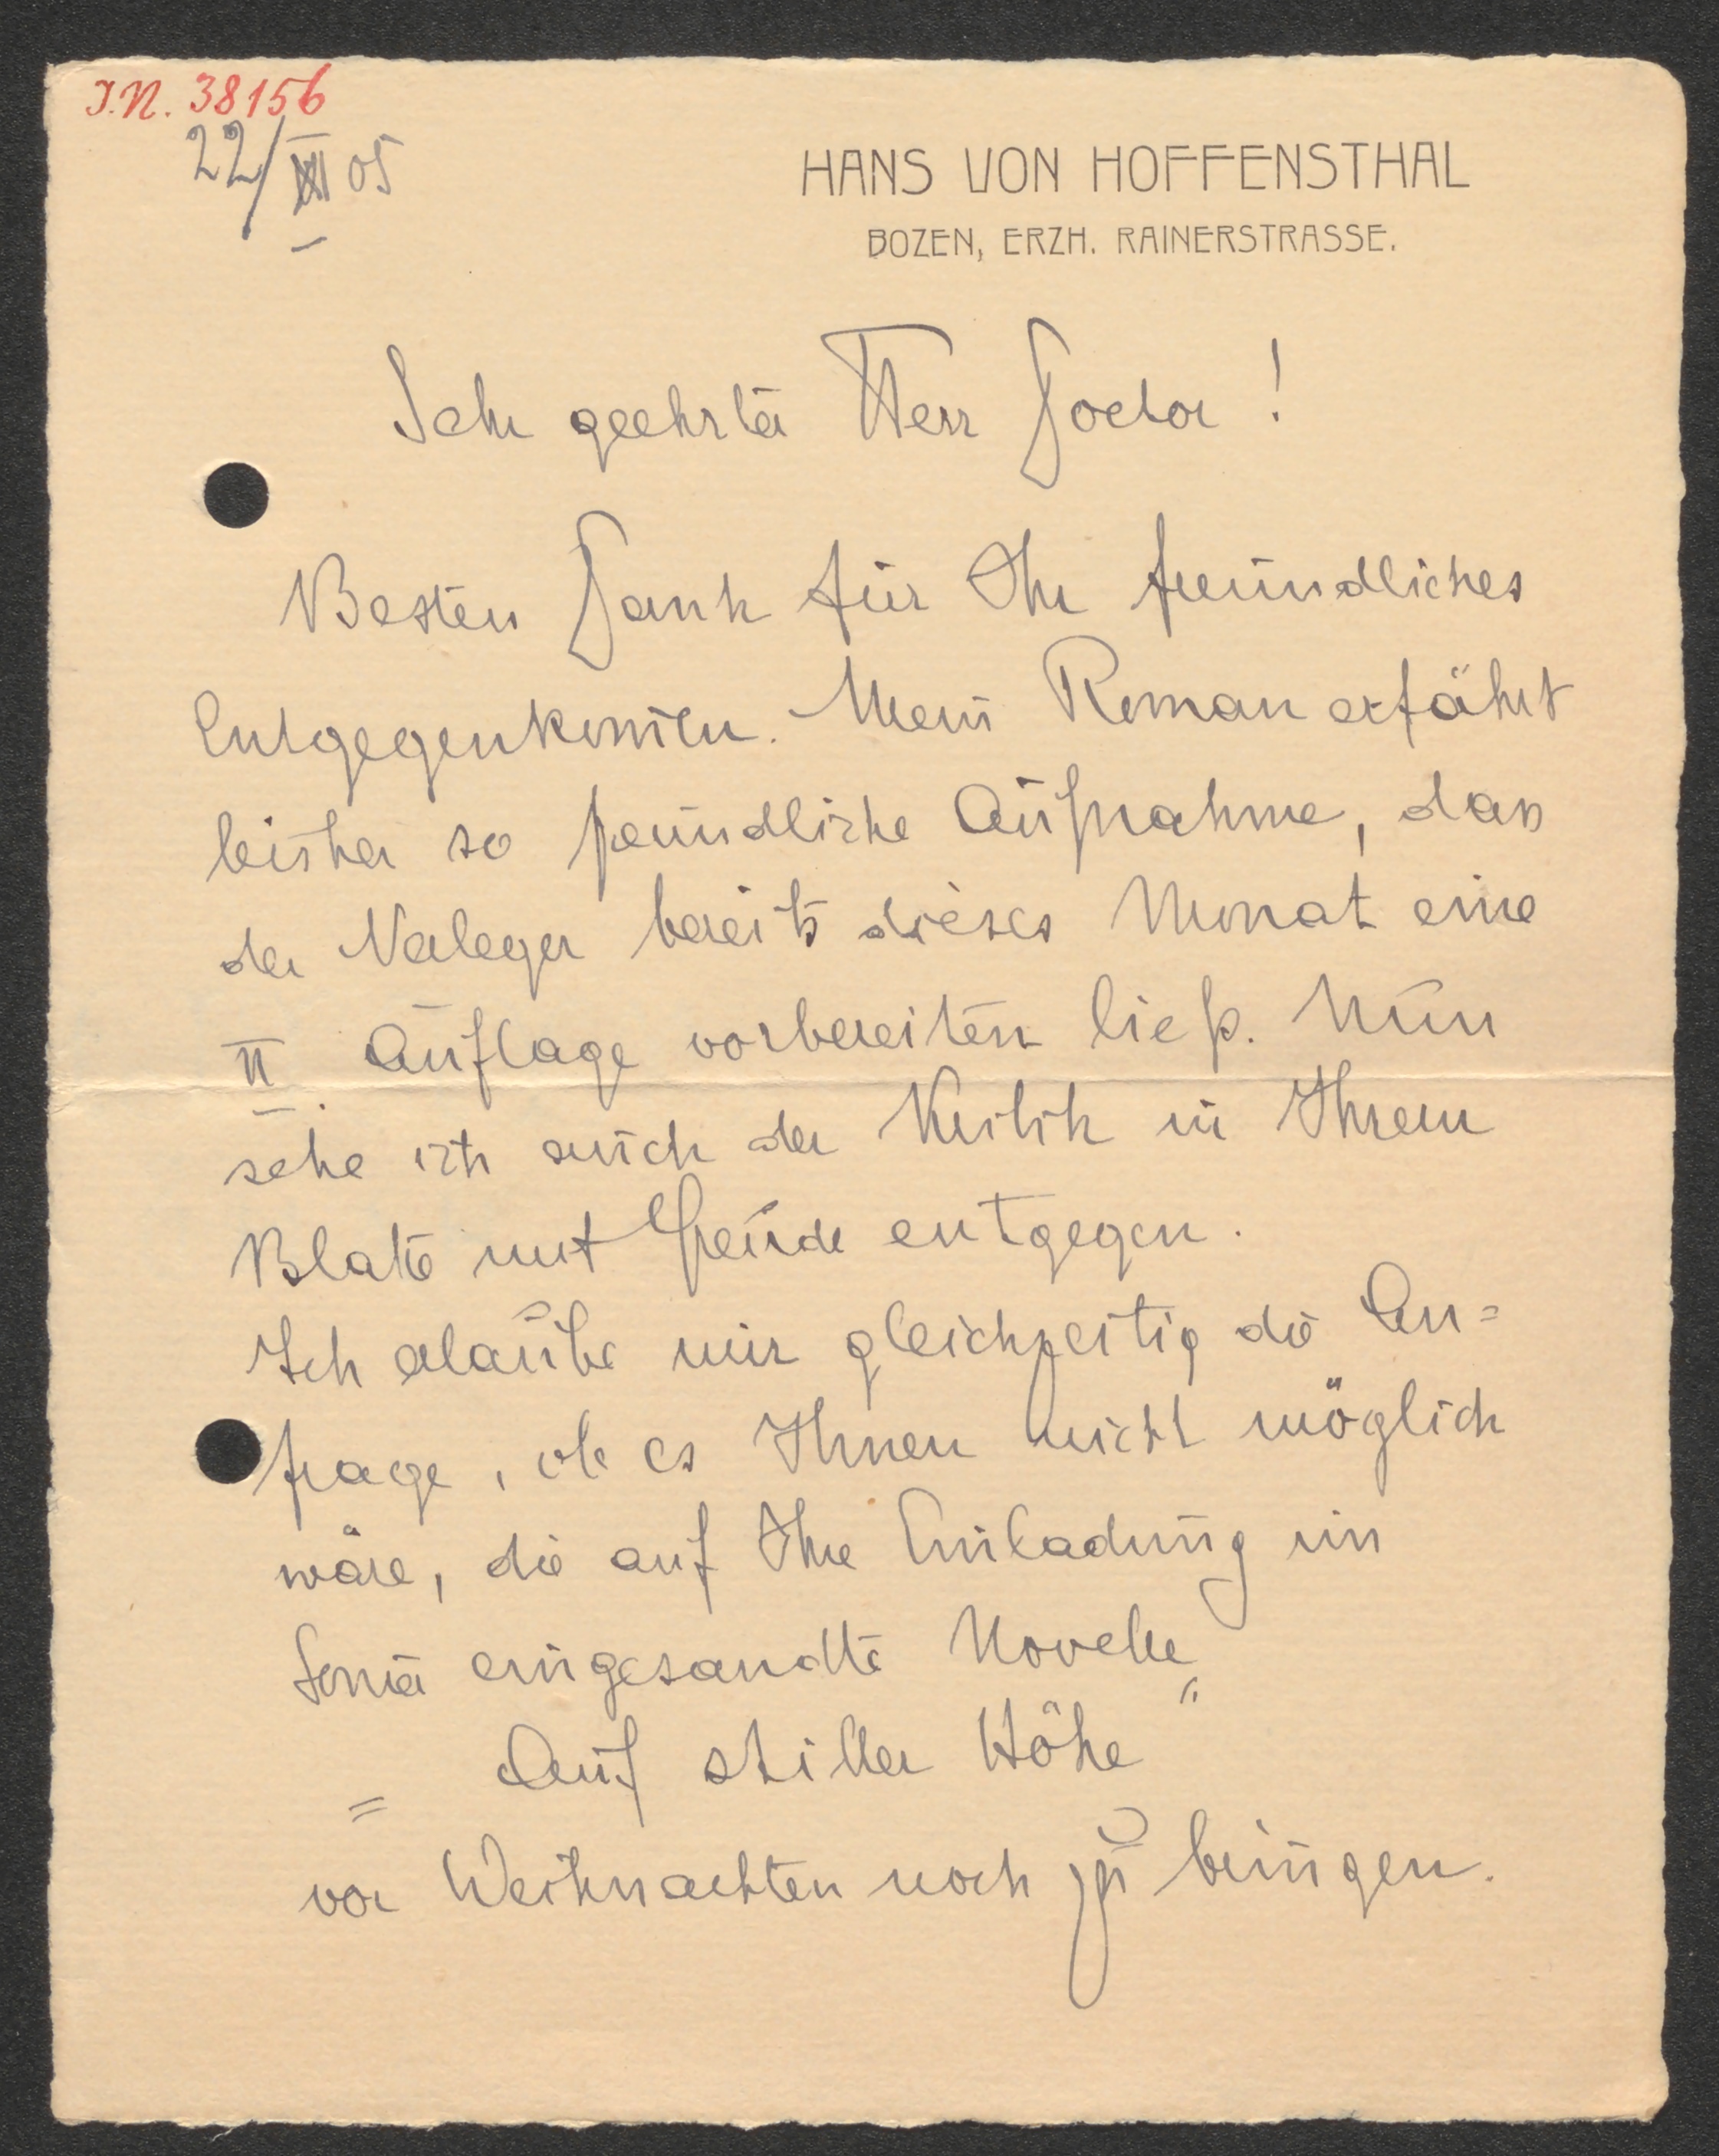 J.N. 38156
22/XI 05
HANS VON HOFFENSTHAL
BOZEN, ERZH. RAINERSTRASSE.
Sehr geehrter Herr Doctor!
Besten Dank für Ihr freundliches
Entgegenkom̄en. Mein Roman erfährt
bisher so freundliche Aufnahme, dass
der Verleger bereits dieses Monat eine
II. Auflage vorbereiten ließ. Nun
sehe ich auch der Kritik in Ihrem
Blatte mit Freude entgegen.
Ich erlaube mir gleichzeitig die An=
frage, ob es Ihnen nicht möglich
wäre, die auf Ihre Einladung im
Som̄er eingesandte Novelle
„Auf stiller Höhe"
vor Weihnachten noch zu bringen.